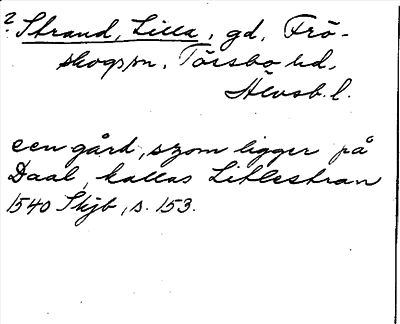 ? Strand, Lilla, gd, Frö-
skogs sn. Tössbo hd,
Älvsb. l.
een gård, szom ligger på
Daal, kallas Litlestran
1540 Skjb, s. 153.